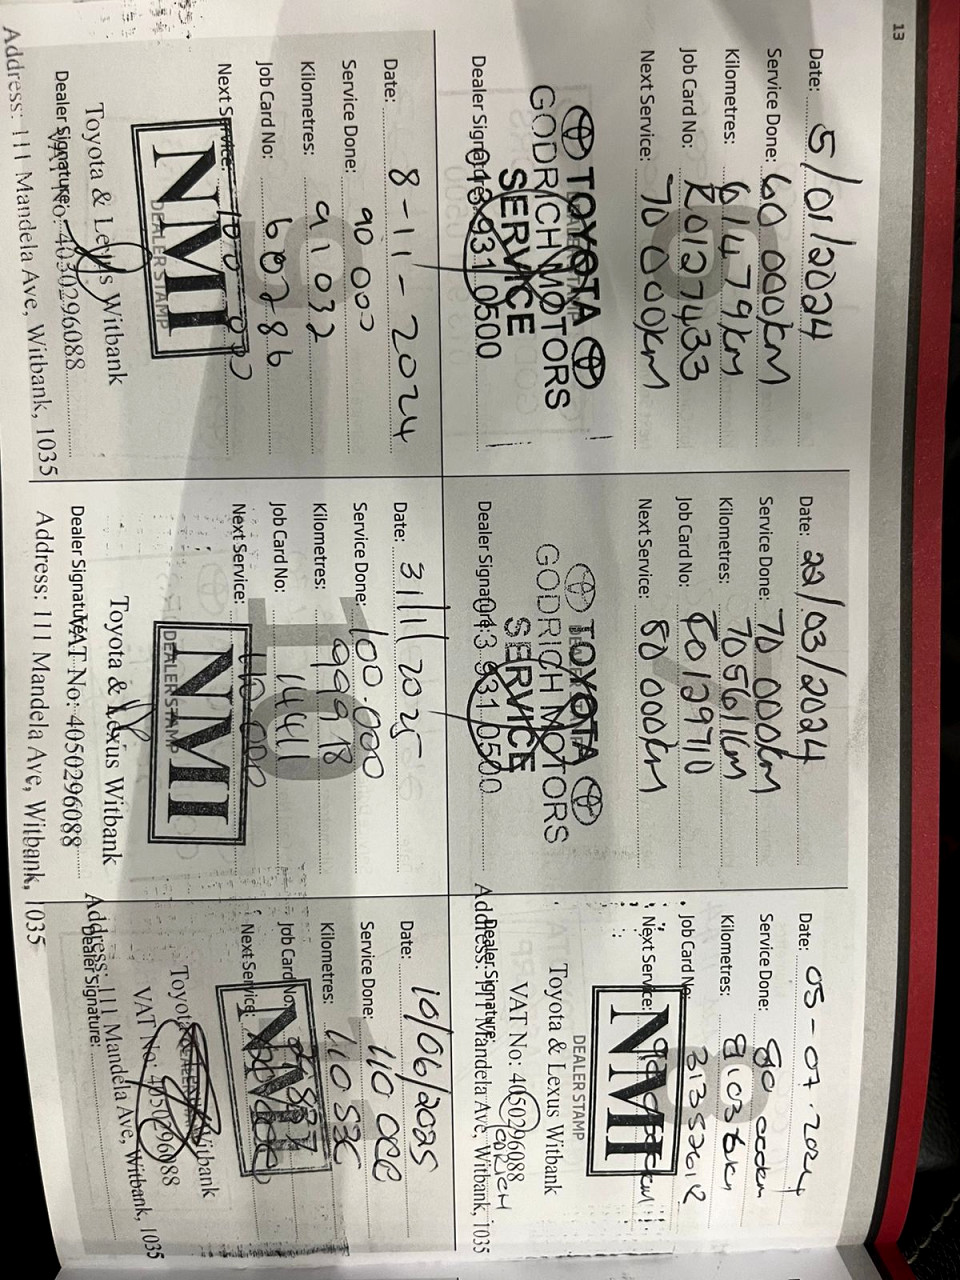 13
Date: 5/01/2024
Service Done: 60 000km
Kilometres: 61479km
Job Card No: R0127433
Next Service: 70 000km
TOYOTA
GODRICH MOTORS
SERVICE
Dealer Signature: 013 931 0500
Date: 22/03/2024
Service Done: 70 000km
Kilometres: 70561km
Job Card No: R0129710
Next Service: 80 000km
TOYOTA
GODRICH MOTORS
SERVICE
Dealer Signature: 013 931 0500
Date: 05-07-2024
Service Done: 80 000km
Kilometres: 81036km
Job Card No:
Next Service:
NMI
DEALER STAMP
Toyota & Lexus Witbank
VAT No: 4050296088
Dealer Signature:
Address: 111 Mandela Ave, Witbank, 1035
9
Date: 8-11-2024
Service Done: 90 000
Kilometres: 91032
Job Card No: 660286
Next Service: 100 000
NMI
DEALER STAMP
Toyota & Lexus Witbank
Dealer Signature:
VAT No: 4050296088
Address: 111 Mandela Ave, Witbank, 1035
10
Date: 31/1/2025
Service Done: 100.000
Kilometres: 99918
Job Card No: 14411
Next Service: 110 000
NMI
DEALER STAMP
Toyota & Lexus Witbank
Dealer Signature:
VAT No: 4050296088
Address: 111 Mandela Ave, Witbank, 1035
11
Date: 10/06/2025
Service Done: 110 000
Kilometres:
Job Card No:
Next Service:
NMI
Toyota & Lexus Witbank
VAT No: 4050296088
Dealer Signature:
Address: 111 Mandela Ave, Witbank, 1035